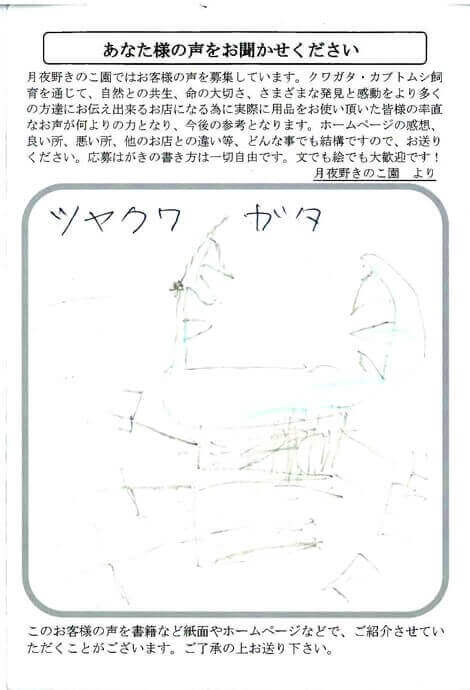 あなた様の声をお聞かせください
月夜野きのこ園ではお客様の声を募集しています。クワガタ・カブトムシ飼
育を通じて、自然との共生、命の大切さ、さまざまな発見と感動をより多く
の方達にお伝え出来るお店になる為に実際に用品をお使い頂いた皆様の率直
なお声が何よりの力となり、今後の参考となります。ホームページの感想、
良い所、悪い所、他のお店との違い等、どんな事でも結構ですので、お送り
ください。応募はがきの書き方は一切自由です。文でも絵でも大歓迎です！
月夜野きのこ園　より
ツヤクワ　ガタ
このお客様の声を書籍など紙面やホームページなどで、ご紹介させてい
ただくことがございます。ご了承の上お送り下さい。